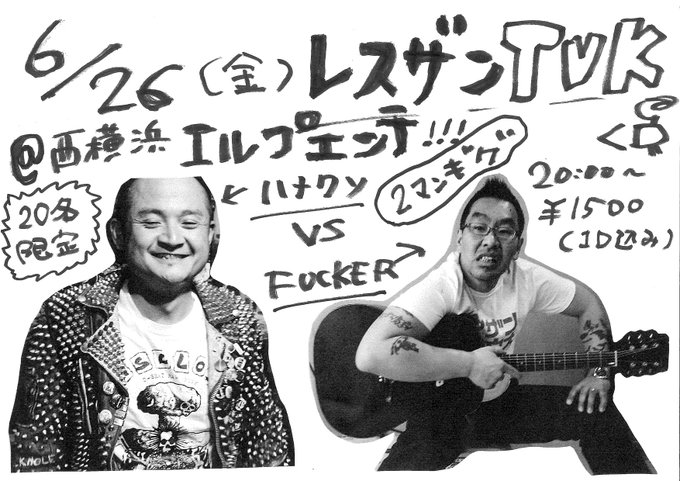 6/26(金)レスザンTVK
@西横浜 エルプエンテ!!!
2マンギグ
20名
限定
←ハナクソ
VS
FUCKER→
20:00〜
¥1500
(1D込み)
K.HOLE